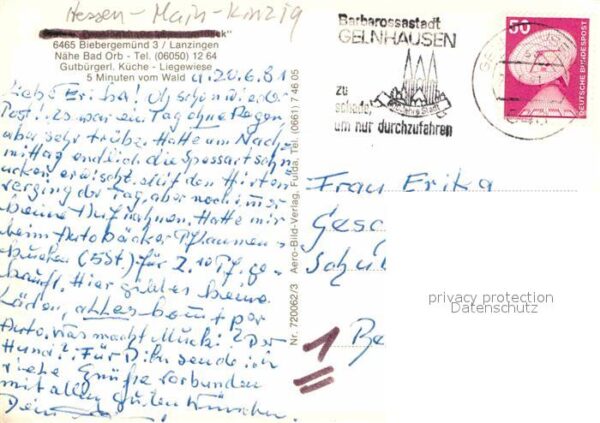 Hessen-Main-Kinzig
6465 Biebergemünd 3 / Lanzingen
Nähe Bad Orb - Tel. (06050) 12 64
Gutbürgerl. Küche - Liegewiese
5 Minuten vom Wald
d. 20.6.81
Liebe Erika! Oh schön wieder
Post! Es war ein Tag ohne Regen
aber sehr trübe. Hatte am Nach
mittag endlich die Spessart
erwischt. Mit den
verging der Tag, aber noch immer
keine Aufnahmen. Hatte mir
beim Autobäcker Pflaumen-
(5St) für 2.10 Pf. ge-
kauft. Hier gibt es keine
Läden, alles kommt per
Auto. Was macht Mucki? Der
Hund? Für Dich sende ich
viele Grüße verbunden
mit allen guten Wünschen.
Dein
Nr. 720062/3 Aero-Bild-Verlag, Fulda, Tel. (0661) 7 46 05
Barbarossastadt
GELNHAUSEN
zu
schade,
um nur durchzufahren
50
DEUTSCHE BUNDESPOST
Frau Erika
Gesc
Schul
1 Be
privacy protection
Datenschutz